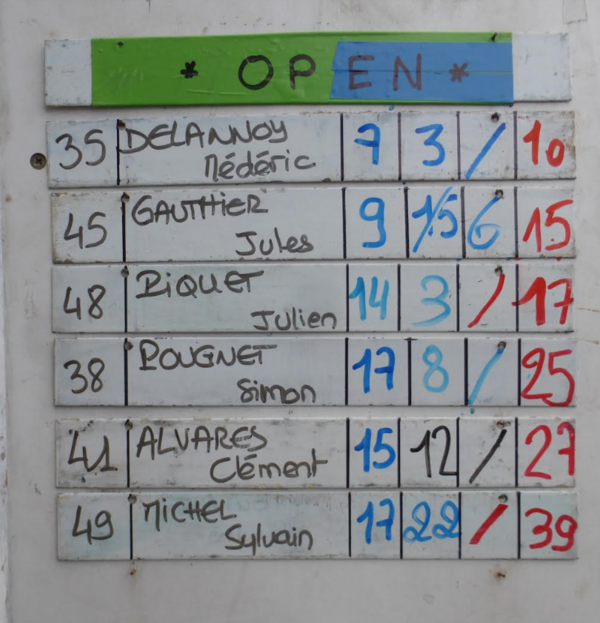 * OPEN *
35 DELANNOY 7 3 / 10
Médéric
45 GAUTHIER 9 15 6 15
Jules
48 PiQUET 14 3 / 17
Julien
38 POUGNET 17 8 / 25
Simon
41 ALVARES 15 12 / 27
Clément
49 MiCHEL 17 22 / 39
Sylvain